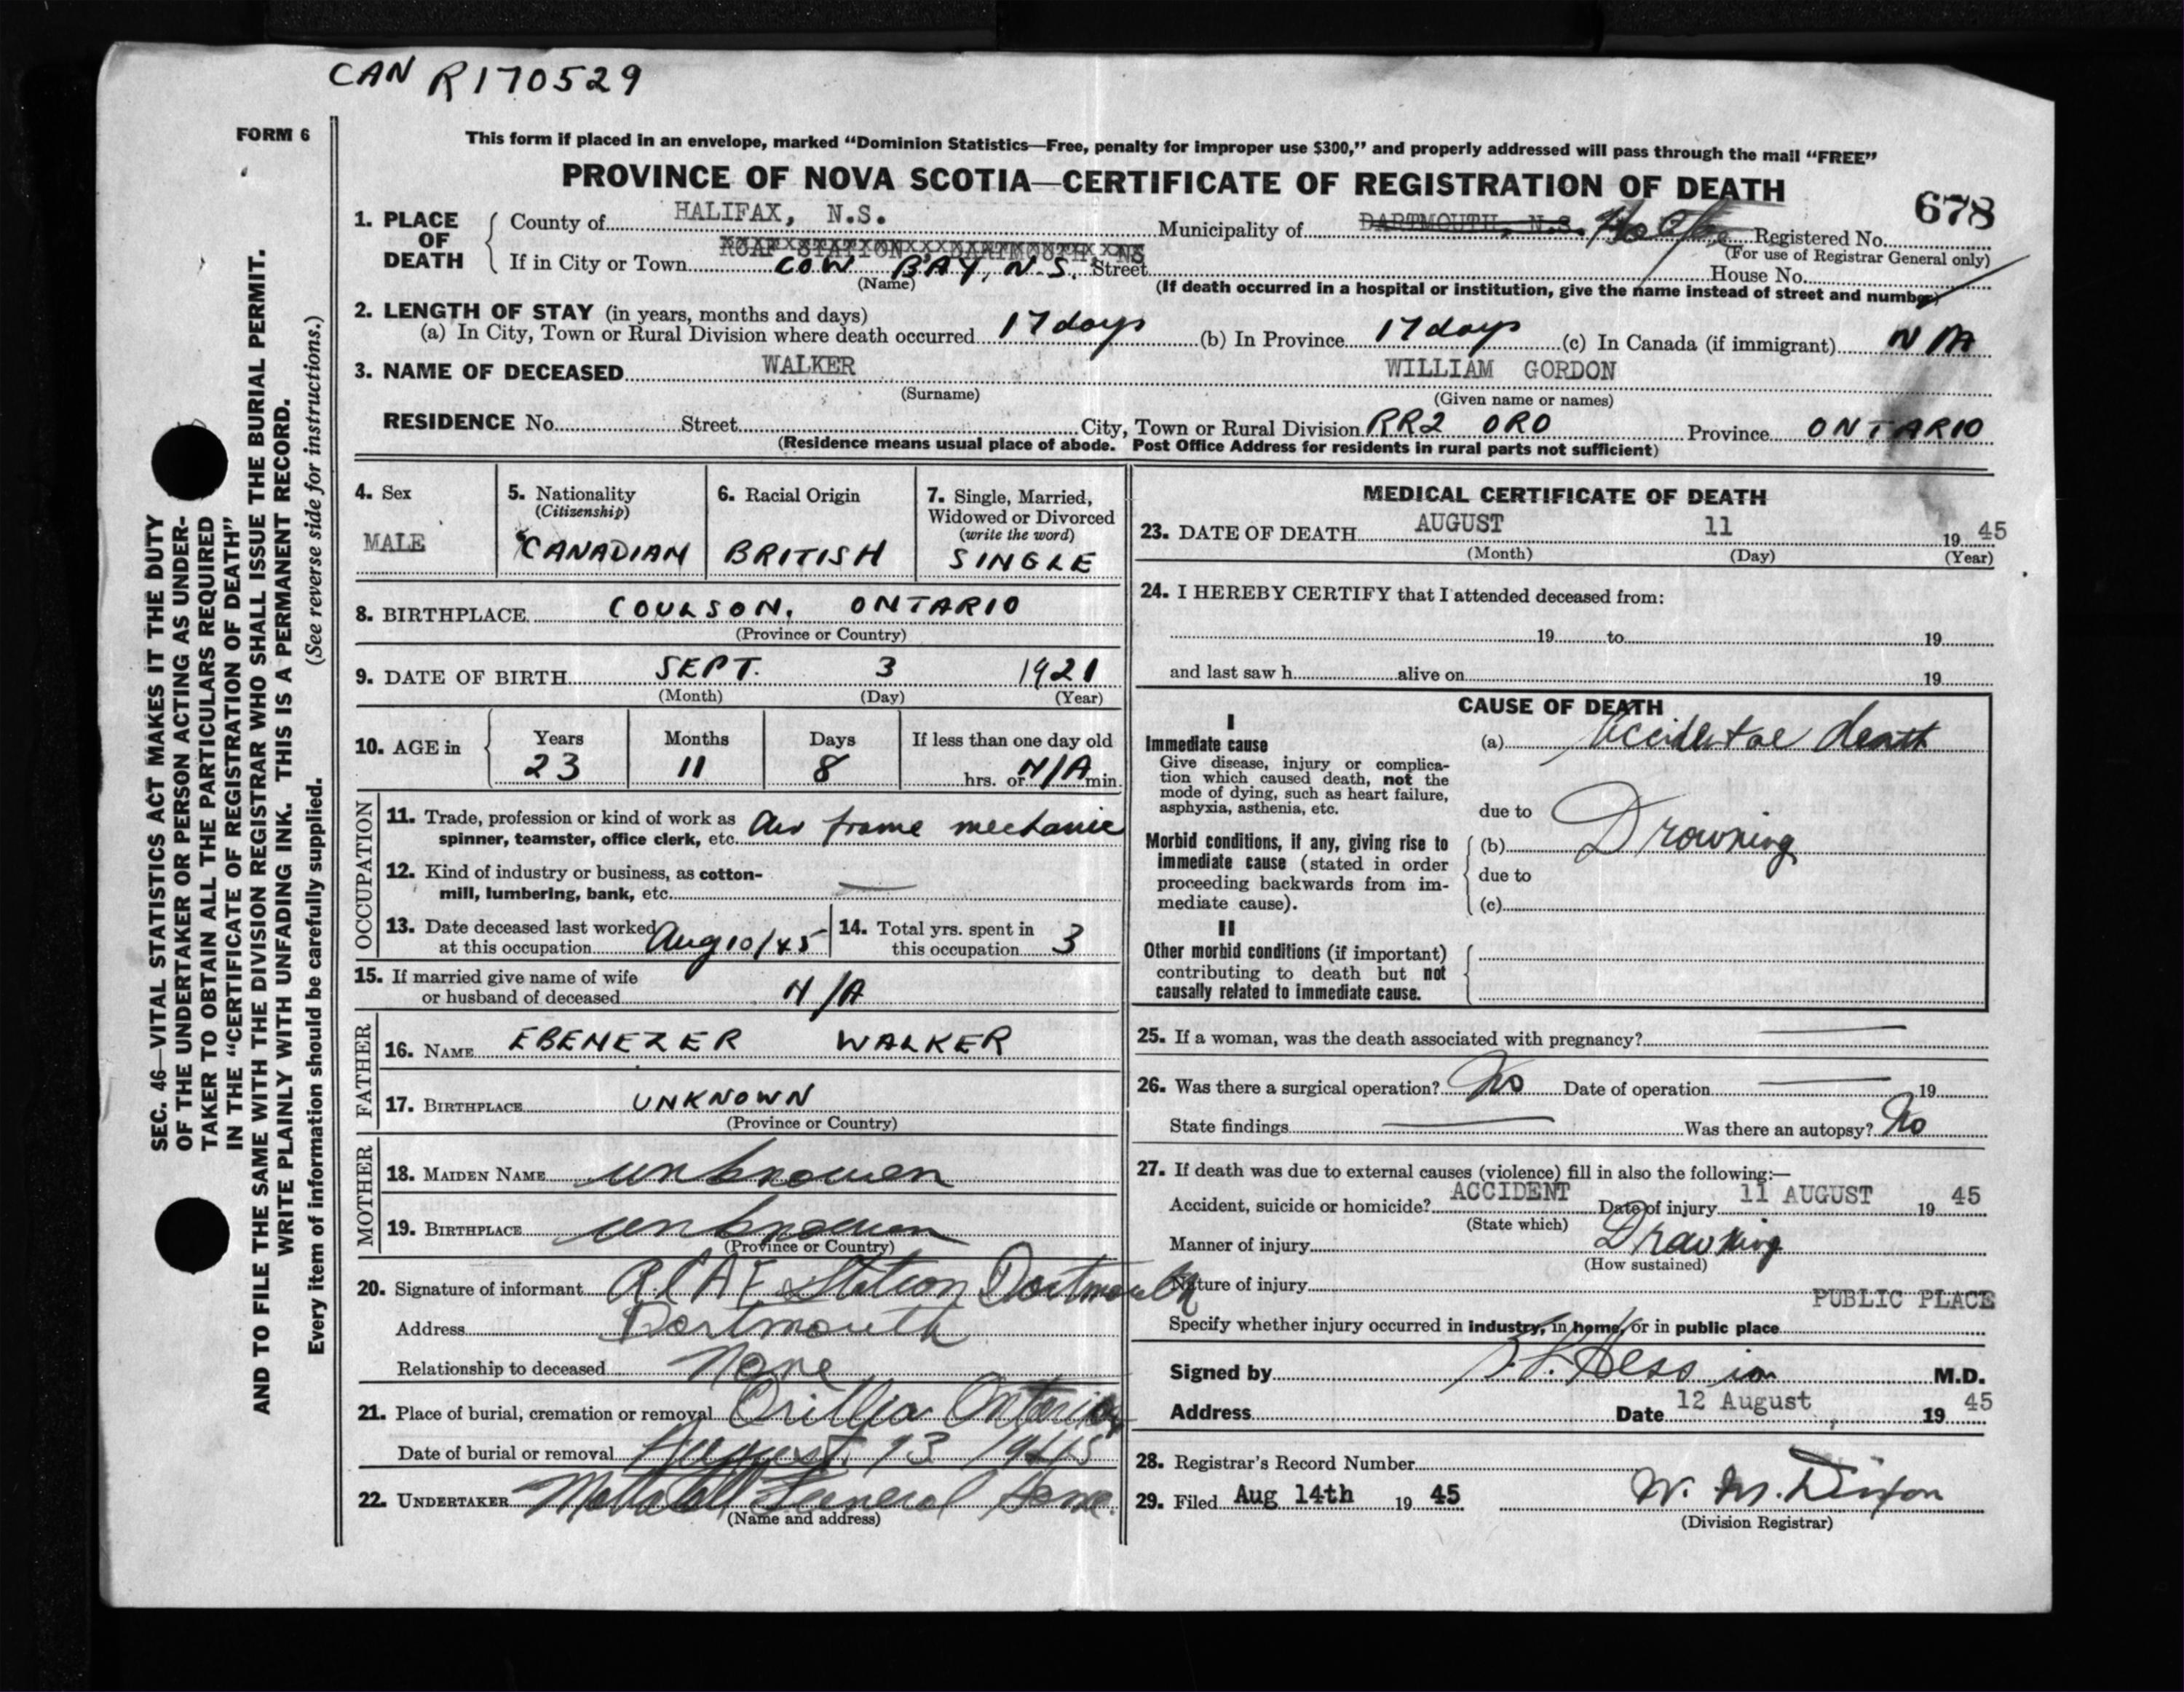 CAN R170529
FORM 6
This form if placed in an envelope, marked "Dominion Statistics—Free, penalty for improper use $300," and properly addressed will pass through the mail "FREE"
PROVINCE OF NOVA SCOTIA—CERTIFICATE OF REGISTRATION OF DEATH
678
1. PLACE OF DEATH
County of HALIFAX, N.S. Municipality of DARTMOUTH, N.S. Registered No.
(For use of Registrar General only)
RCAF STATION DARTMOUTH, NS
If in City or Town COW BAY, N.S. Street House No.
(Name) (If death occurred in a hospital or institution, give the name instead of street and number)
2. LENGTH OF STAY (in years, months and days)
(a) In City, Town or Rural Division where death occurred 17 days (b) In Province 17 days (c) In Canada (if immigrant) N/A
3. NAME OF DECEASED WALKER WILLIAM GORDON
(Surname) (Given name or names)
RESIDENCE No. Street City, Town or Rural Division RR2 ORO Province ONTARIO
(Residence means usual place of abode. Post Office Address for residents in rural parts not sufficient)
4. Sex
MALE
5. Nationality
(Citizenship)
CANADIAN
6. Racial Origin
BRITISH
7. Single, Married,
Widowed or Divorced
(write the word)
SINGLE
8. BIRTHPLACE COULSON, ONTARIO
(Province or Country)
9. DATE OF BIRTH SEPT. 3 1921
(Month) (Day) (Year)
10. AGE in
Years Months Days If less than one day old
23 11 8 hrs. or N/A min.
OCCUPATION
11. Trade, profession or kind of work as
spinner, teamster, office clerk, etc. Air frame mechanic
12. Kind of industry or business, as cotton-
mill, lumbering, bank, etc. —
13. Date deceased last worked
at this occupation Aug 10/45
14. Total yrs. spent in
this occupation 3
15. If married give name of wife
or husband of deceased N/A
FATHER
16. NAME EBENEZER WALKER
17. BIRTHPLACE UNKNOWN
(Province or Country)
MOTHER
18. MAIDEN NAME unknowen
19. BIRTHPLACE unknown
(Province or Country)
20. Signature of informant RCAF Station Dartmouth
Address Dartmouth
Relationship to deceased None
21. Place of burial, cremation or removal Orillia Ontario
Date of burial or removal August 13 1945
22. UNDERTAKER Funeral Home.
(Name and address)
MEDICAL CERTIFICATE OF DEATH
23. DATE OF DEATH AUGUST 11 19 45
(Month) (Day) (Year)
24. I HEREBY CERTIFY that I attended deceased from:
19 to 19
and last saw h alive on 19
CAUSE OF DEATH
I
Immediate cause
Give disease, injury or complica-
tion which caused death, not the
mode of dying, such as heart failure,
asphyxia, asthenia, etc.
(a) Accidental death
due to
Morbid conditions, if any, giving rise to
immediate cause (stated in order
proceeding backwards from im-
mediate cause).
(b) Drowning
due to
(c)
II
Other morbid conditions (if important)
contributing to death but not
causally related to immediate cause.
25. If a woman, was the death associated with pregnancy? —
26. Was there a surgical operation? No Date of operation — 19
State findings — Was there an autopsy? No
27. If death was due to external causes (violence) fill in also the following:—
Accident, suicide or homicide? ACCIDENT Date of injury 11 AUGUST 19 45
(State which)
Manner of injury Drowning
(How sustained)
Nature of injury
Specify whether injury occurred in industry, in home, or in public place PUBLIC PLACE
Signed by M.D.
Address Date 12 August 19 45
28. Registrar's Record Number
29. Filed Aug 14th 19 45 W. M. Dixon
(Division Registrar)
SEC. 46—VITAL STATISTICS ACT MAKES IT THE DUTY
OF THE UNDERTAKER OR PERSON ACTING AS UNDER-
TAKER TO OBTAIN ALL THE PARTICULARS REQUIRED
IN THE "CERTIFICATE OF REGISTRATION OF DEATH"
AND TO FILE THE SAME WITH THE DIVISION REGISTRAR WHO SHALL ISSUE THE BURIAL PERMIT.
WRITE PLAINLY WITH UNFADING INK. THIS IS A PERMANENT RECORD.
Every item of information should be carefully supplied. (See reverse side for instructions.)